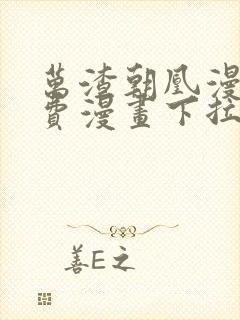 萬渣朝凰漫
費漫畫下拉
善E之